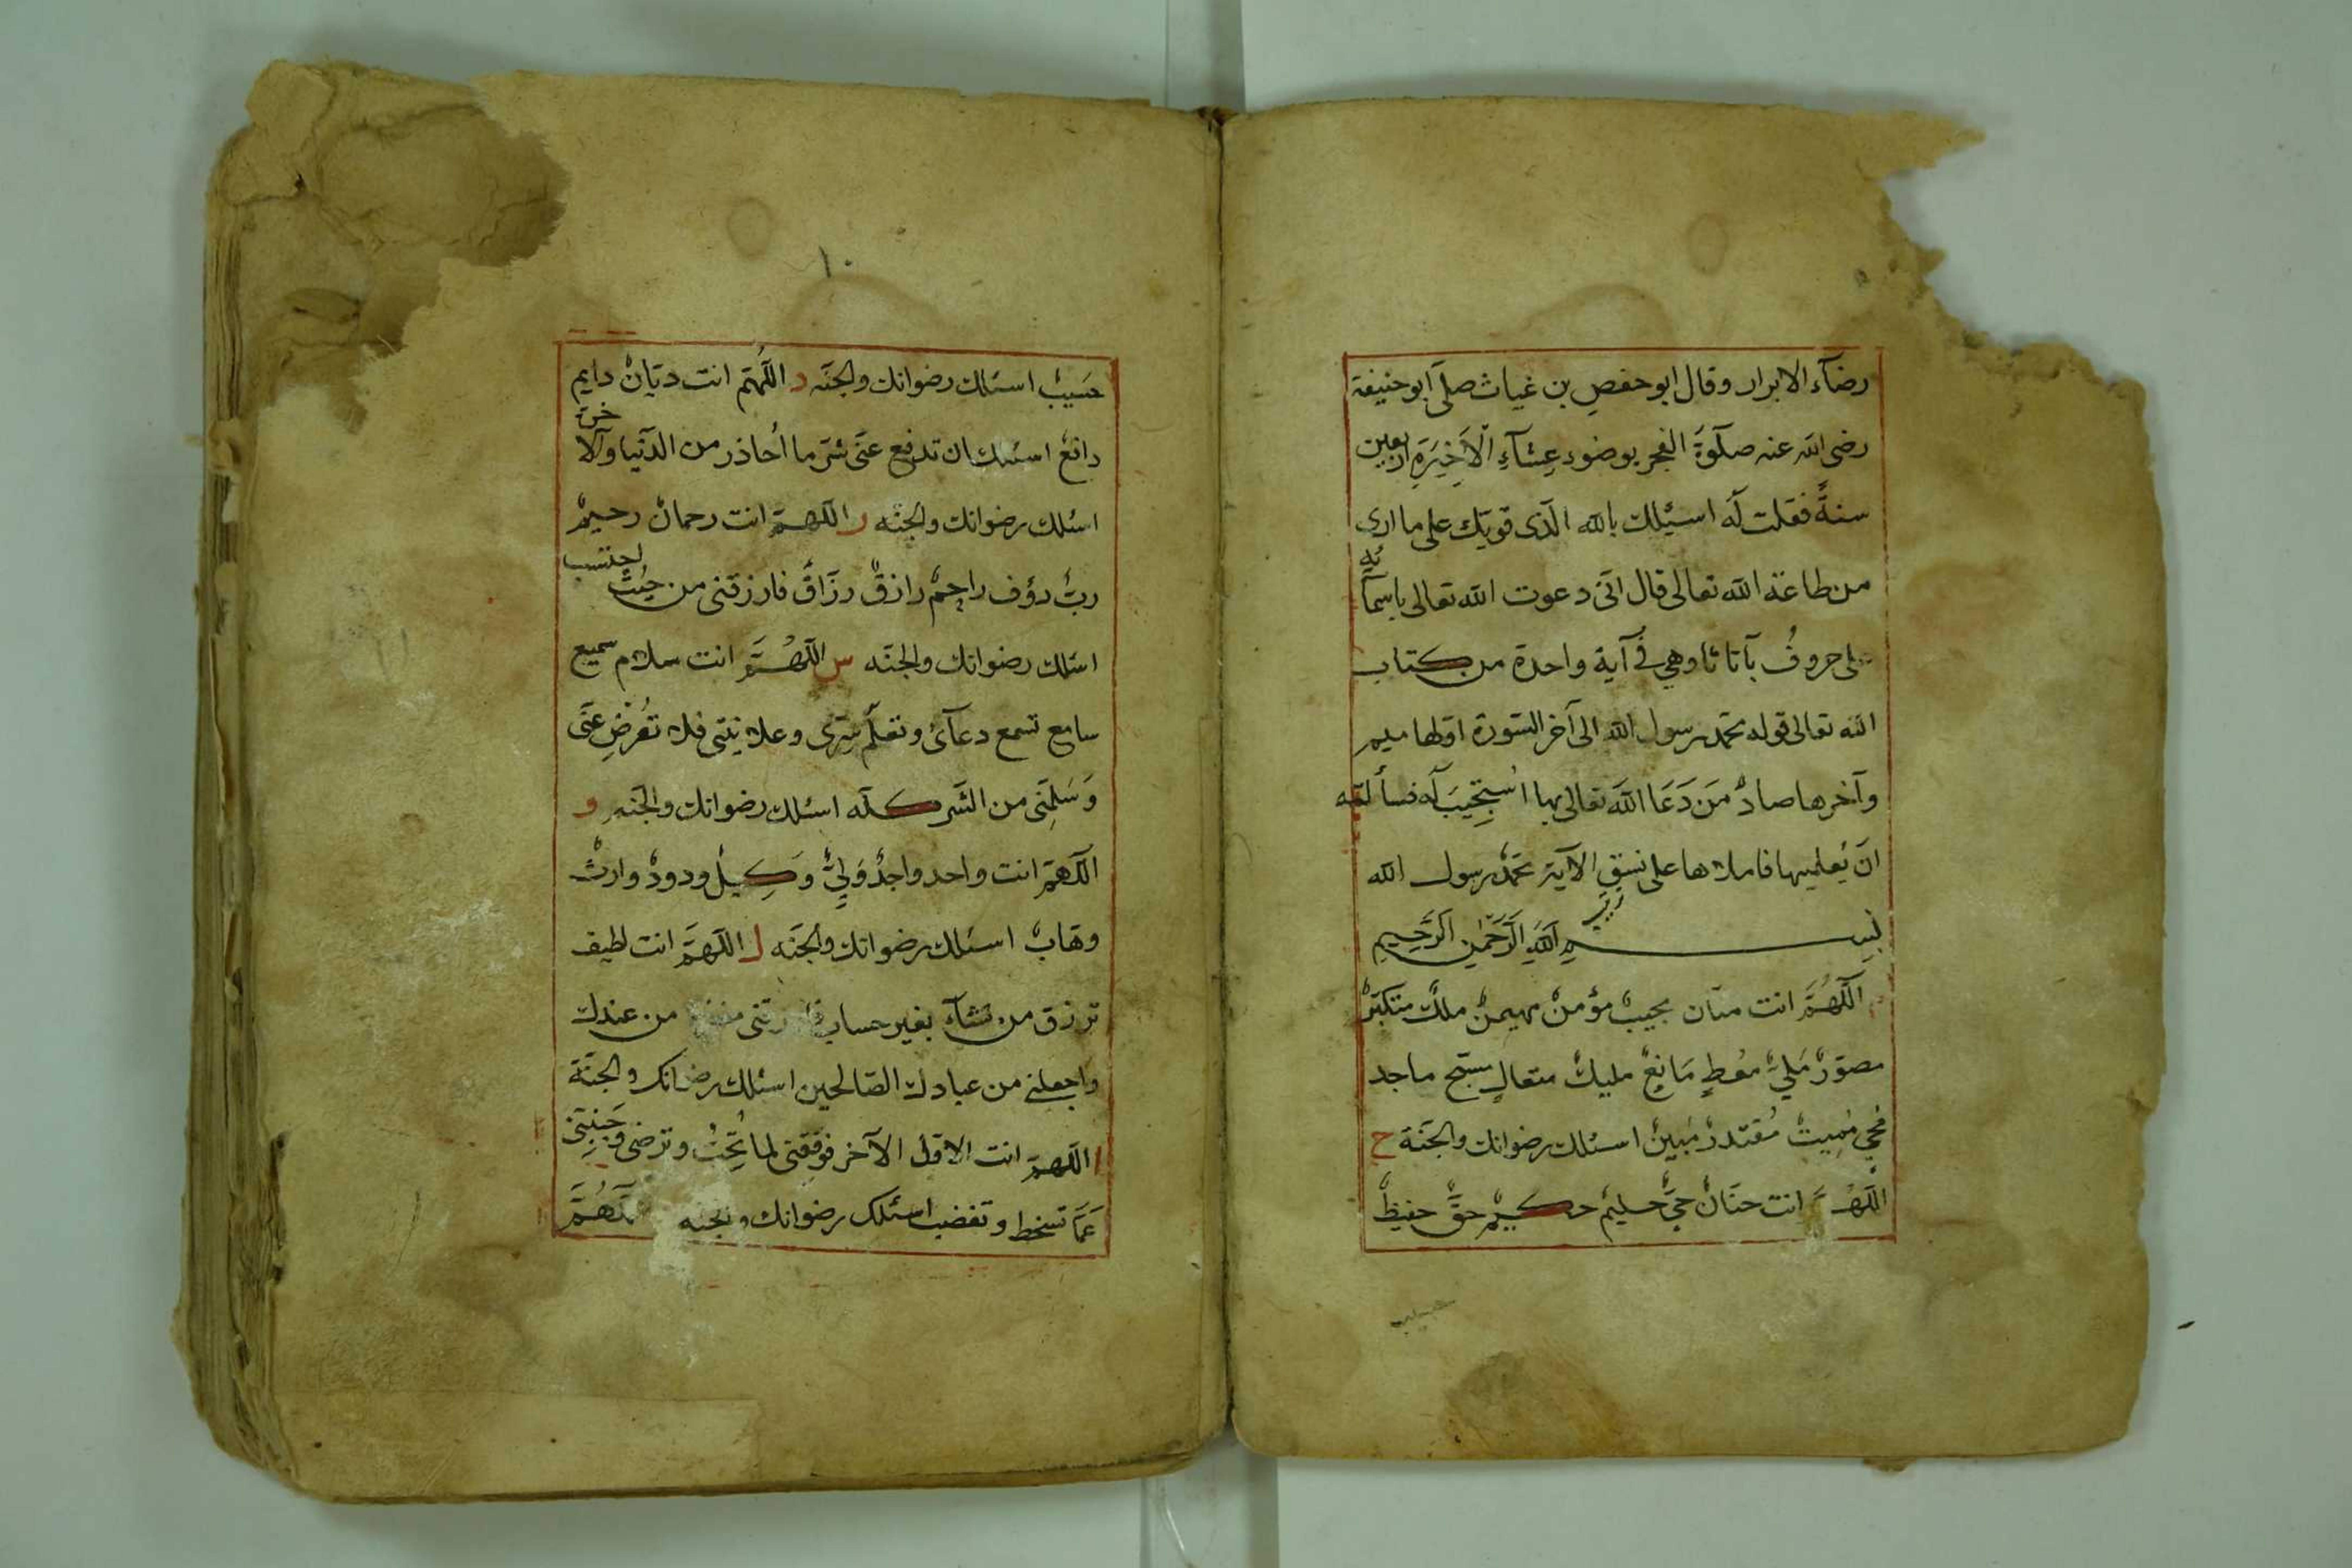 رضآء الابرار وقال ابو حفصٍ بن غياث صلّى ابو حنيفة
رضى الله عنه صلٓوةَ الفجر بوضوء عِشآءِ الْاَخِيَرَةِ اربعين
سنةً فقلت لَه اسئلك بالله الّذى قويّك على ما ارى
من طاعة الله تعالى قال انّى دعوت الله تعالى باسمآئه
على حروفُ باَ تا ثا وهى فى آية واحدة من كتاب
الله تعالى قوله محمّد رسول الله الى آخر السّورة اوّلها ميم
وآخرها صادٌ مَن دَعَا اللهَ تعالى بها اسُتجِيبَ لَه فسألته
انَ يُعلميها فاملاها على نسَقِ الآية محمّدٌ رسول الله
بسم الله الرّحمٰن الرّحيم
اللّٰهُمَّ انت منّان مجيبٌ مؤمنٌ مهيمنٌ ملكٌ متكبّرٌ
مصوّرٌ مَلىٌ مُعطٍ مَانِعٌ مليكٌ متعالٍ مسبّح ماجد
مُحىٍ مُميتٌ مُقتدرٌ مُبينٌ اسئلك رضوانك والجَنّة ح
اللّهُمَّ انت حنّانٌ حىٌّ حليمٌ حكيمٌ حقٌّ حفيظٌ
حسيب
١٠
حَسيبٌ اسئلك رضوانك والجنّه د اللّٰهُمّ انت ديّانٌ دايم
دافعٌ اسئلك ان تدفع عنّى شرّ ما اُحاذر من الدّنيا والآخرة
اسئلك رضوانك والجنّه ر اللّهمّ انت رحمانٌ رحيمٌ
ربٌّ رؤف راحِمٌ رازقٌ رزّاقٌ فارزقنى من حيُثُ لا يحتسب
اسئلك رضوانك والجنّه س اللّهُمَّ انت سلام سميع
سامع تسمع دعآئى وتعلَم سِرّى وعلانيتى فلا تُعْرِضْ عنّى
وَسَلِّمَنى من الشّر كلّه اسئلك رضوانك والجنّه و
اللّهمّ انت واحد واجدٌ وَلِىٌّ وَكِيلٌ ودودٌ وارثٌ
وهّابٌ اسئلك رضوانك والجنّه ل اللّهمَّ انت لطيف
ترزق من تشآء بغير حساب من عندك
واجعلنى من عبادك الصّالحين اسئلك رضوانك والجنّة
ا اللّهمّ انت الاوّل الآخر فوفّقنى لما تُحِبُّ وترضى وَجَنِبّنى
عَمّا تسخط وتغضب اسئلك رضوانك والجنه اللّٰهُمَّ